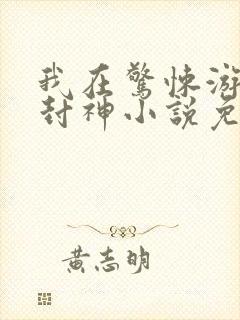 我在驚悚游
封神小說免
黃志明